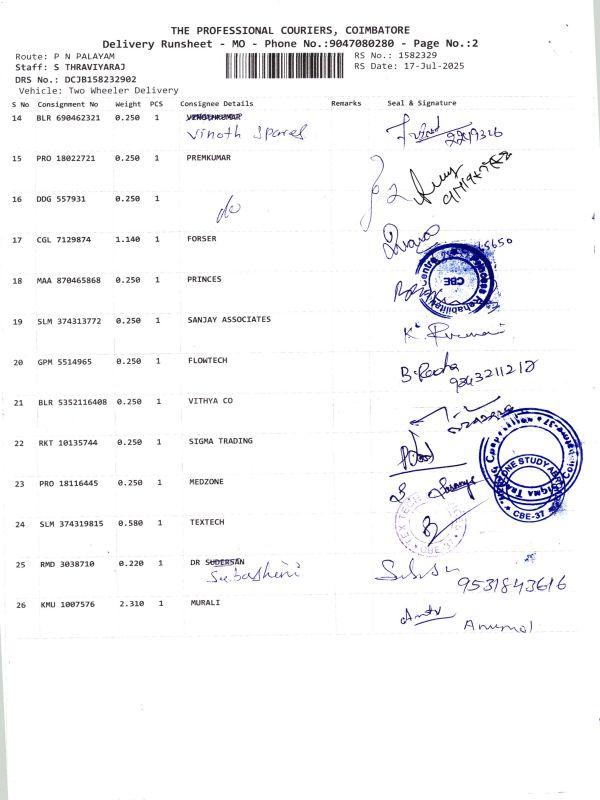 THE PROFESSIONAL COURIERS, COIMBATORE
Delivery Runsheet - MO - Phone No.:9047080280 - Page No.:2
Route: P N PALAYAM RS No.: 1582329
Staff: S THRAVIYARAJ RS Date: 17-Jul-2025
DRS No.: DCJB158232902
Vehicle: Two Wheeler Delivery
S No Consignment No Weight PCS Consignee Details Remarks Seal & Signature
14 BLR 690462321 0.250 1
Vinoth Spares
15 PRO 18022721 0.250 1 PREMKUMAR
16 DDG 557931 0.250 1
do
17 CGL 7129874 1.140 1 FORSER
18 MAA 870465868 0.250 1 PRINCES
CBE
19 SLM 374313772 0.250 1 SANJAY ASSOCIATES
20 GPM 5514965 0.250 1 FLOWTECH
9363211212
21 BLR 5352116408 0.250 1 VITHYA CO
22 RKT 10135744 0.250 1 SIGMA TRADING
23 PRO 18116445 0.250 1 MEDZONE
CBE-37
24 SLM 374319815 0.580 1 TEXTECH
TEX TECH
25 RMD 3038710 0.220 1 DR SUDERSAN
Subashini
9531843616
26 KMU 1007576 2.310 1 MURALI
Anumol